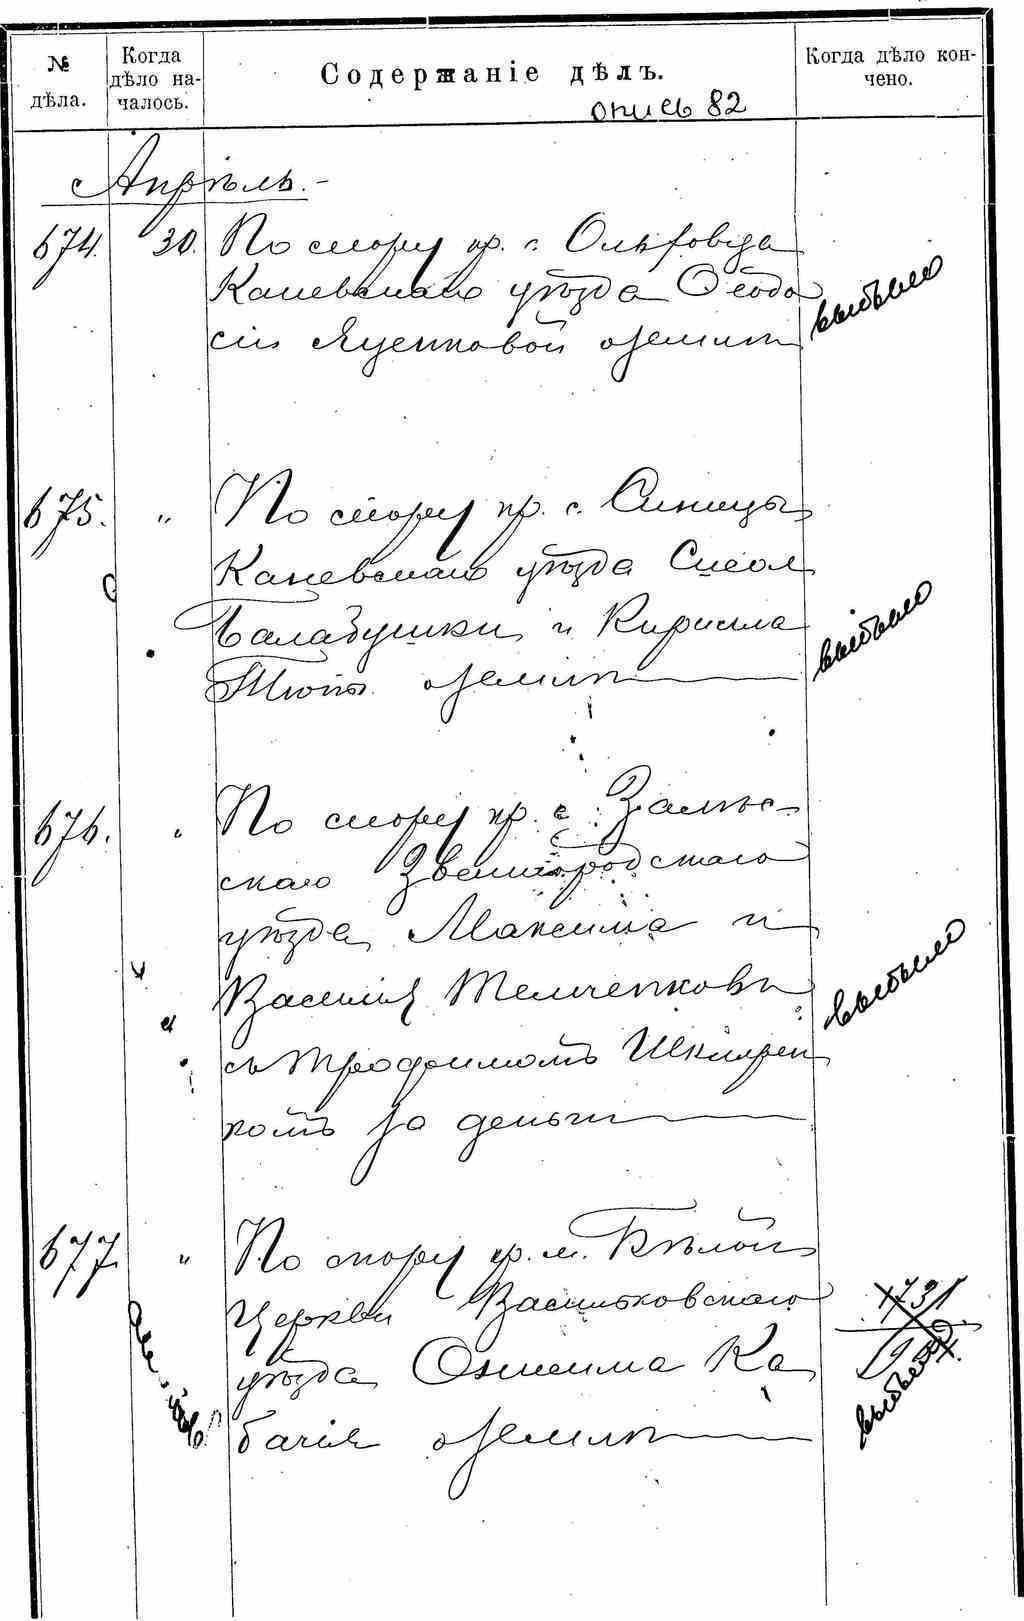 № дѣла.
Когда дѣло на-
чалось.
Содержаніе дѣлъ.
Когда дѣло кон-
чено.
опись 82
Апрѣль.-
674. 30. По спору кр. с. Ольховца
Каневскаго уѣзда Ѳеодо
сіи Яценковой о землѣ
выбыло
675. " По спору кр. с. Синицы
Каневскаго уѣзда
Балабушки и Кирилла
о землѣ
выбыло
676. " По спору кр. с. Залѣс-
скаго Звенигородскаго
уѣзда Максима и
Василія Теличенковы
съ Трофимомъ Шкляреn
комъ за деньги
выбыло
677. " По спору кр. м. Бѣлой
Церкви Васильковскаго
уѣзда Онисима Ка
бачія о землѣ
1731
выбыло